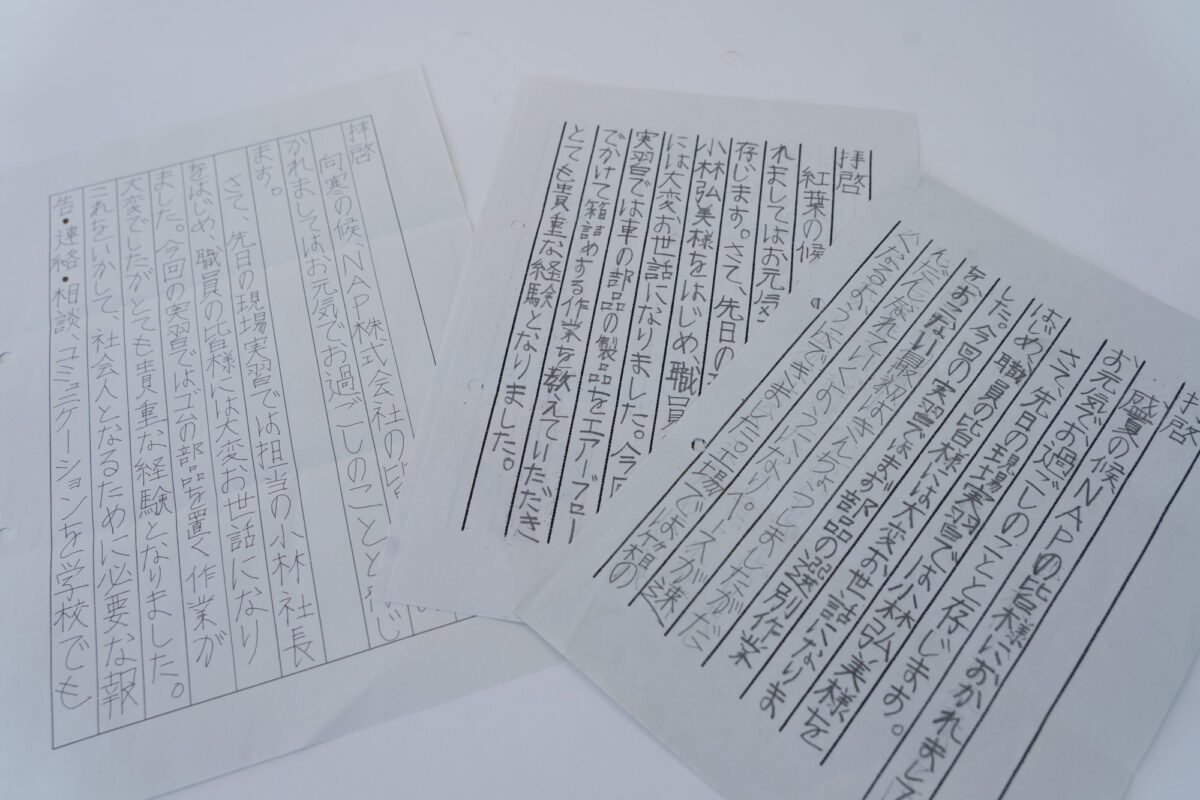 拝啓
向寒の候、NAP株式会社の皆
かれましてはお元気でお過ごしのことと存じ
ます。
さて、先日の現場実習では担当の小林社長
をはじめ、職員の皆様には大変お世話になり
ました。今回の実習ではゴムの部品を置く作業が
大変でしたがとても貴重な経験となりました。
これをいかして、社会人となるために必要な報
告・連絡・相談、コミュニケーションを学校でも
拝啓
紅葉の候
れましてはお元気
存じます。さて、先日の
小林弘美様をはじめ、職員
には大変お世話になりました。今回
実習では車の部品の製品をエアーブロー
でかけて箱詰めする作業を教えていただき
とても貴重な経験となりました。
拝啓
盛夏の候、NAPの皆様におかれまして
お元気でお過ごしのことと存じます。
さて、先日の現場実習では小林弘美様を
はじめ、職員の皆様には大変お世話になりま
した。今回の実習ではまず部品の選別作業
をおこない最初はきんちょうしましたがだ
んだんなれていくようになりペースが速
くなるようにできました。工場では箱の